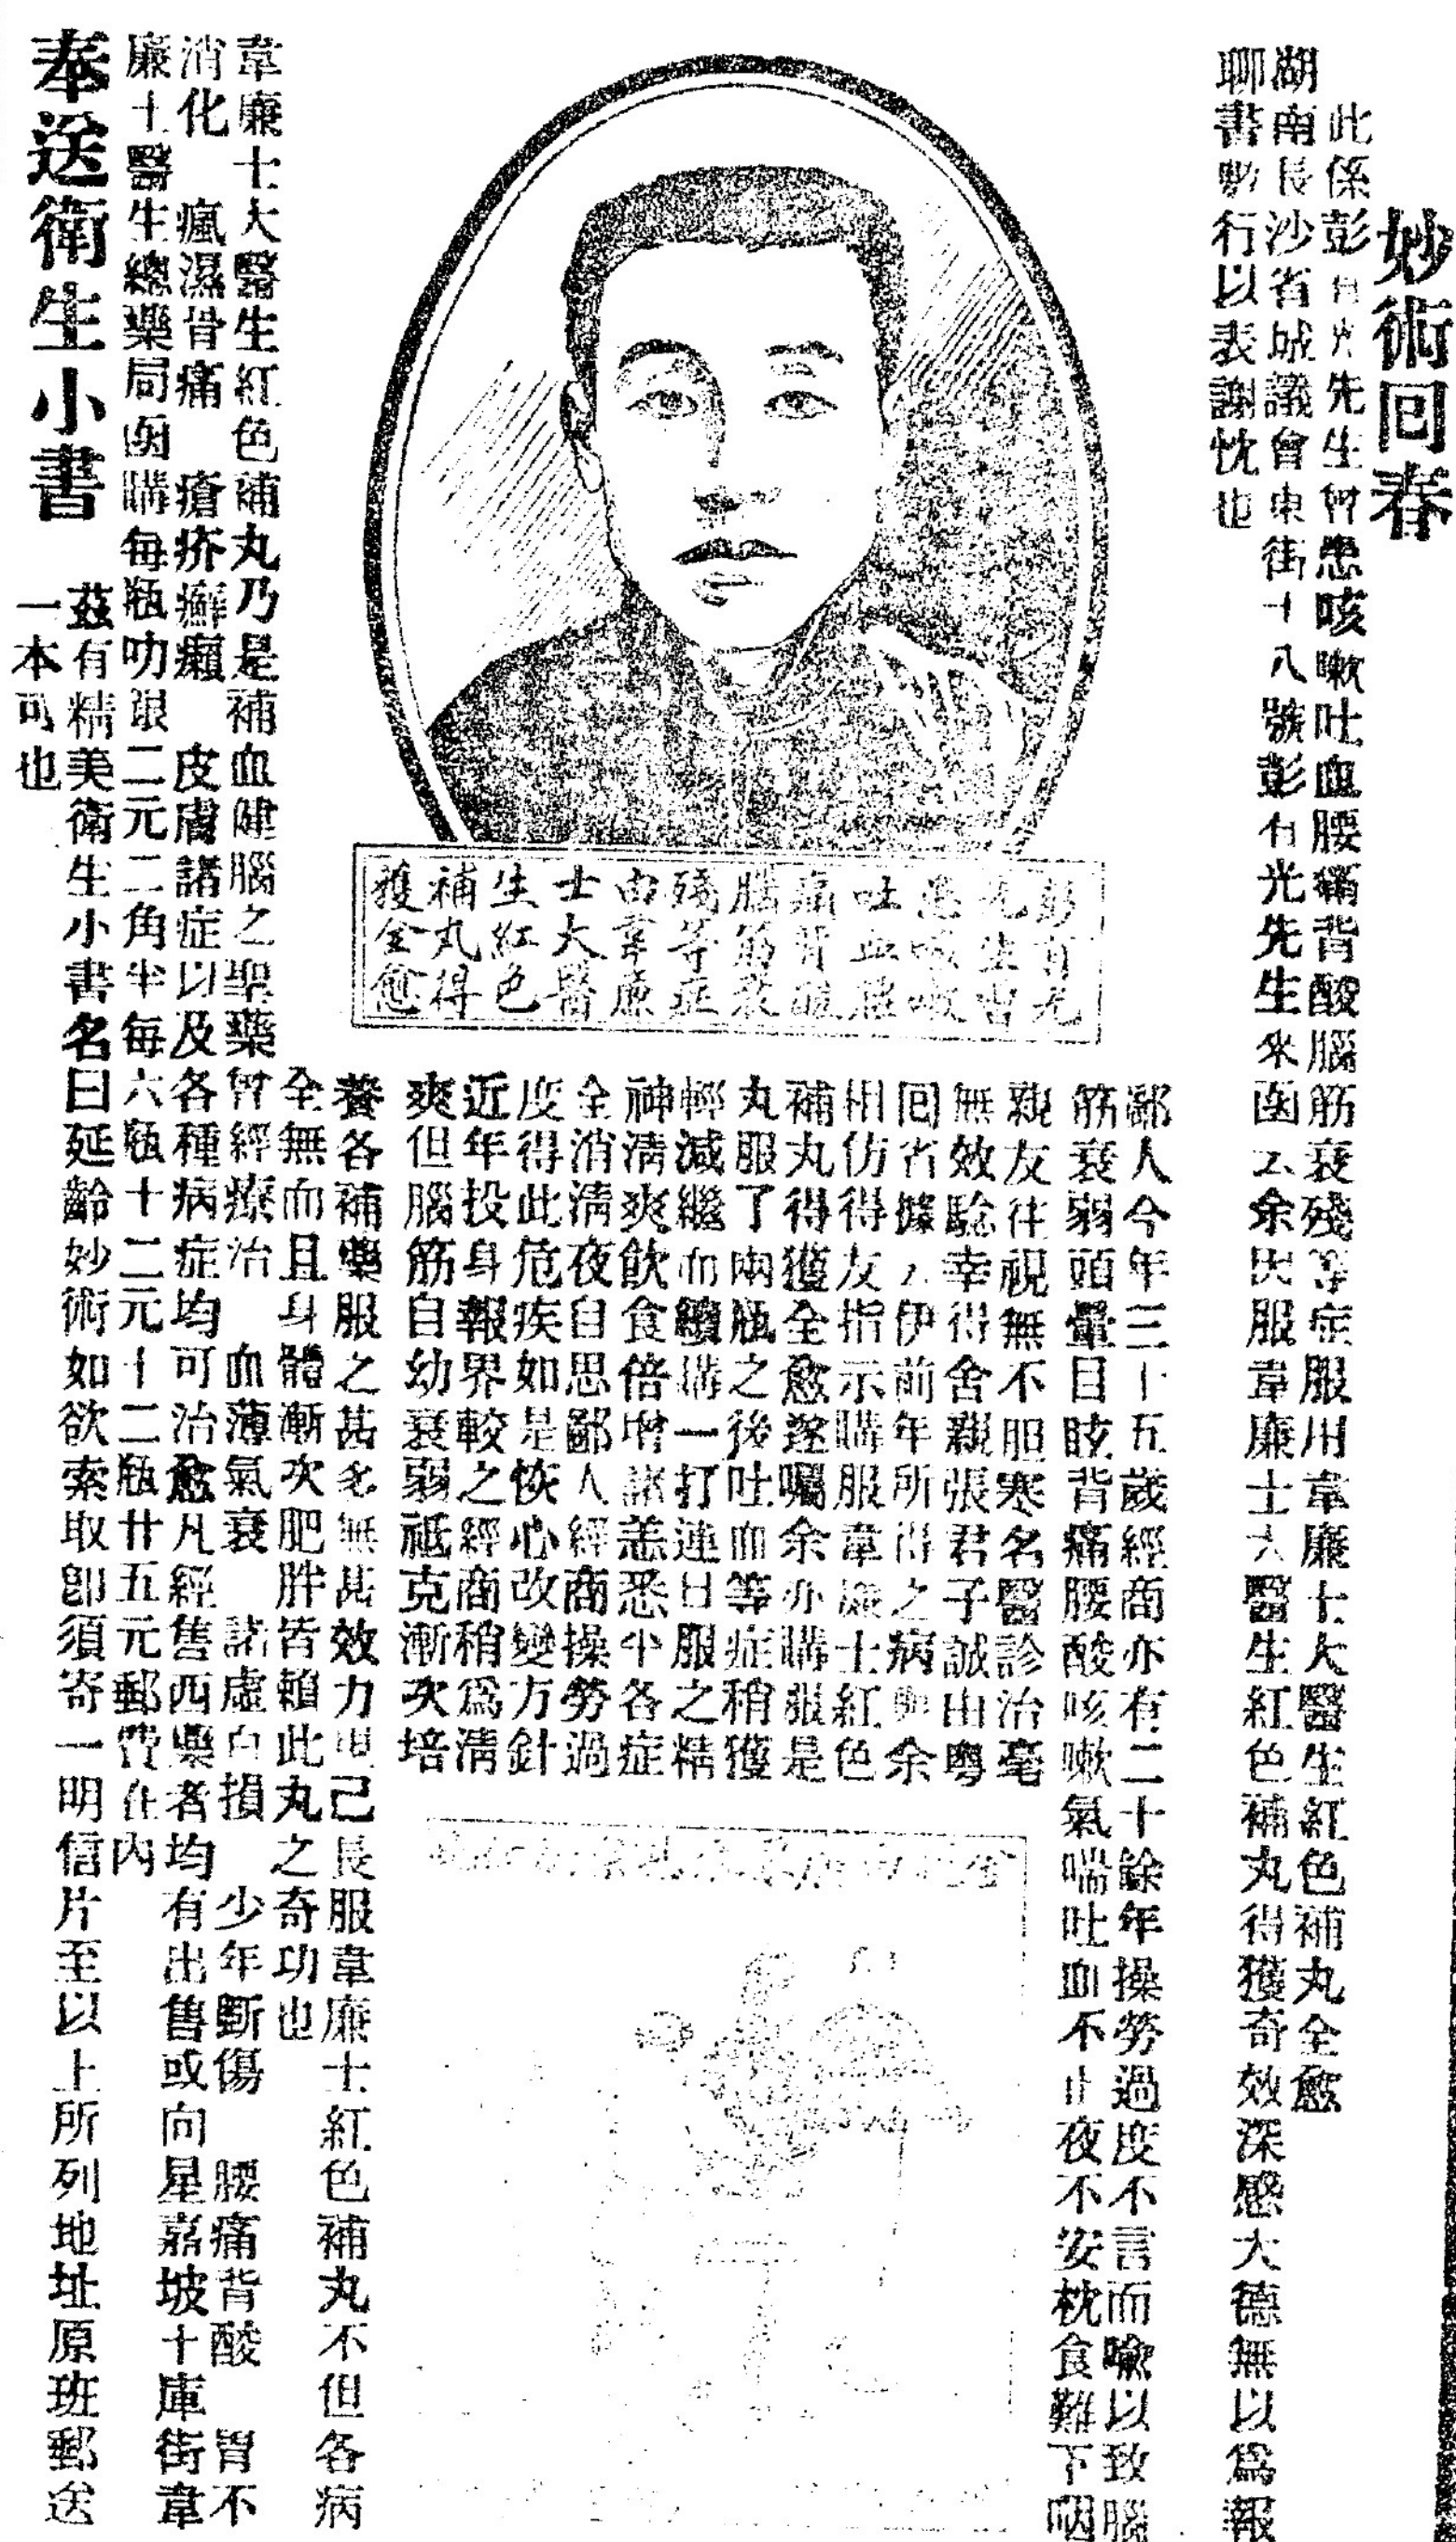 妙術回春
此係彭有光先生曾患咳嗽吐血腰痛背酸腦筋衰殘等症服用韋廉士大醫生紅色補丸全愈
湖南長沙省城議會東街十八號彭有光先生來函云余因服韋廉士大醫生紅色補丸得獲奇效深感大德無以爲報
聊書數行以表謝忱也
彭有光
先生曾
患咳嗽
吐血腰
痛背酸
腦筋衰
殘等症
由韋廉
士大醫
生紅色
補丸得
獲全愈
鄙人今年三十五歲經商亦有二十餘年操勞過度不言而喻以致腦
筋衰弱頭暈目眩背痛腰酸咳嗽氣喘吐血不止夜不安枕食難下咽
親友往視無不胆寒名醫診治毫
無效騐幸得舍親張君子誠由粤
囘省據云伊前年所得之病與余
相仿得友指示購服韋廉士紅色
補丸得獲全愈遂囑余亦購服是
丸服了兩瓶之後吐血等症稍獲
輕減繼而續購一打連日服之精
神清爽飲食倍增諸恙悉平各症
全消清夜自思鄙人經商操勞過
度得此危疾如是恢心改變方針
近年投身報界較之經商稍爲清
爽但腦筋自幼衰弱祗克漸次培
養各補藥服之甚多無甚效力 己長服韋廉士紅色補丸不但各病
全無而且身體漸次肥胖皆賴此丸之奇功也
韋廉士大醫生紅色補丸乃是補血健腦之聖藥曾經療治 血薄氣衰 諸虛百損 少年斲傷 腰痛背酸 胃不
消化 瘋濕骨痛 瘡疥癬癩 皮膚諸症以及各種病症均可治愈凡經售西藥者均有出售或向星嘉坡十庫街韋
廉士醫生總藥局函購每瓶叻銀二元二角半每六瓶十二元十二瓶廿五元郵費在內
奉送衛生小書
茲有精美衛生小書名曰延齡妙術如欲索取卽須寄一明信片至以上所列地址原班郵送
一本可也